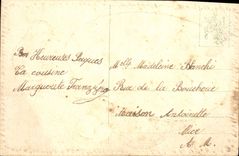 Bon Heureuses Pâques
Ta cousine
Marguerite
Melle Madeleine Bianchi
Rue de la Boucherie
Maison Antoinette
Nice
A. M.